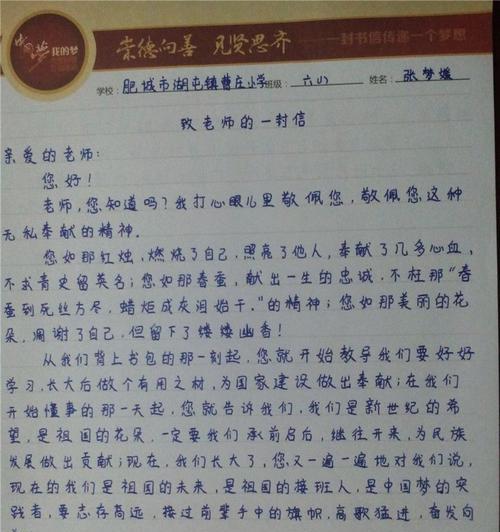 我的梦 崇德向善 见贤思齐 一封书信传递一个梦想
学校:肥城市湖屯镇曹庄小学 班级:六(1) 姓名:张梦媛
致老师的一封信
亲爱的老师:
您好!
老师,您知道吗?我打心眼儿里敬佩您,敬佩您这种
无私奉献的精神。
您如那红烛,燃烧了自己,照亮了他人,奉献了几多心血,
不求青史留英名;您如那春蚕,献出一生的忠诚,不枉那“春
蚕到死丝方尽,蜡炬成灰泪始干。”的精神;您如那美丽的花
朵,凋谢了自己,但留下了缕缕幽香!
从我们背上书包的那一刻起,您就开始教导我们要好好
学习,长大后做个有用之材,为国家建设做出奉献;在我们
开始懂事的那一天起,您就告诉我们,我们是新世纪的希
望,是祖国的花朵,一定要我们承前启后,继往开来,为民族
发展做出贡献;现在,我们长大了,您又一遍一遍地对我们说,
现在的我们是祖国的未来,是祖国的接班人,是中国梦的实
践者,要志存高远,接过前辈手中的旗帜,高歌猛进,奋发向